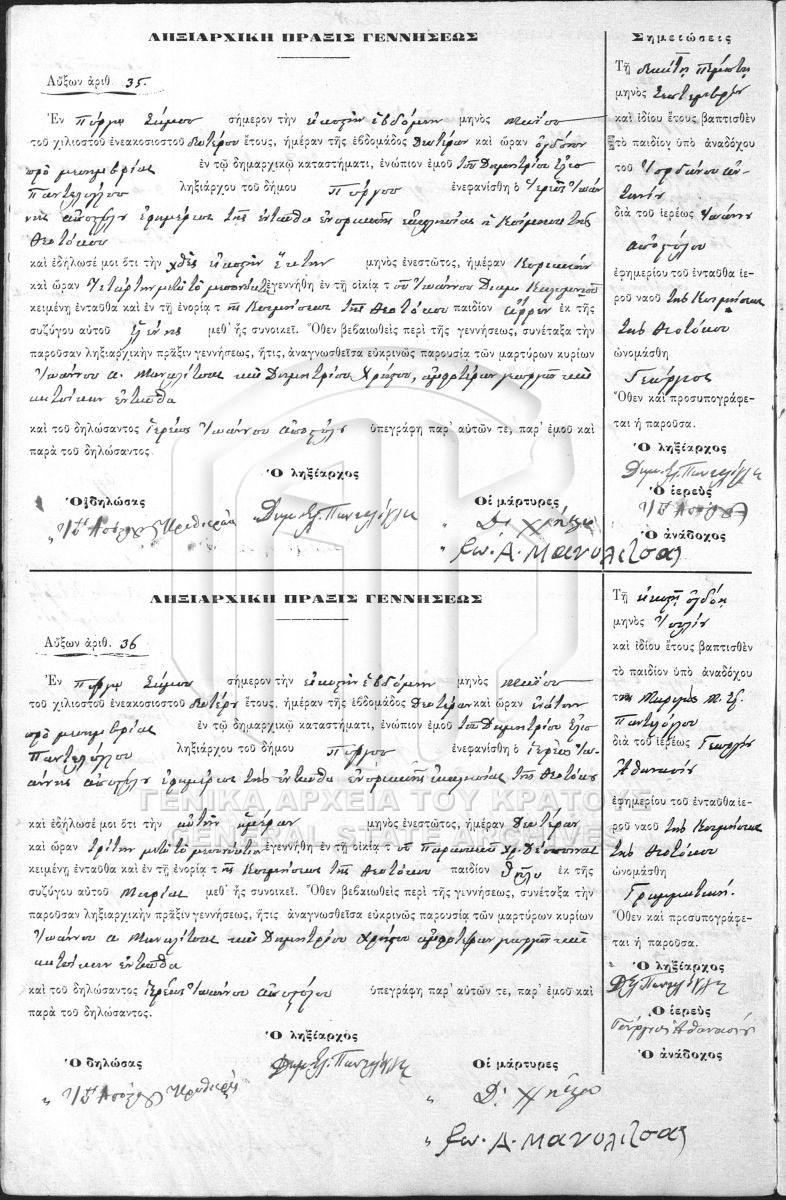 ΛΗΞΙΑΡΧΙΚΗ ΠΡΑΞΙΣ ΓΕΝΝΗΣΕΩΣ
Αὔξων ἀριθ. 35.
Ἐν Πύργῳ σήμερον τὴν εἰκοστὴν ἑβδόμην μηνὸς Μαΐου
τοῦ χιλιοστοῦ ἐνεακοσιοστοῦ δευτέρου ἔτους, ἡμέραν τῆς ἑβδομάδος Δευτέραν καὶ ὥραν ὀγδόην
πρὸ μεσημβρίας ἐν τῷ δημαρχικῷ καταστήματι, ἐνώπιον ἐμοῦ τοῦ Δημητρίου
ληξιάρχου τοῦ δήμου Πύργου ἐνεφανίσθη ὁ ἱερεὺς Ἰωάν
νης ἐφημέριος τῆς ἐνταῦθα ἐνοριακῆς ἐκκλησίας ἡ Κοίμησις τῆς
Θεοτόκου
καὶ ἐδήλωσέ μοι ὅτι τὴν χθὲς εἰκοστὴν ἕκτην μηνὸς ἐνεστῶτος, ἡμέραν Κυριακὴν
καὶ ὥραν τετάρτην ἐγεννήθη ἐν τῇ οἰκίᾳ τοῦ Ἰωάννου
κειμένῃ ἐνταῦθα καὶ ἐν τῇ ἐνορίᾳ τῆς Κοιμήσεως τῆς Θεοτόκου παιδίον ἄρρεν ἐκ τῆς
συζύγου αὐτοῦ Ἑλένης μεθ' ἧς συνοικεῖ. Ὅθεν βεβαιωθεὶς περὶ τῆς γεννήσεως, συνέταξα τὴν
παροῦσαν ληξιαρχικὴν πρᾶξιν γεννήσεως, ἥτις, ἀναγνωσθεῖσα εὐκρινῶς παρουσίᾳ τῶν μαρτύρων κυρίων
Ἰωάννου Α. Μανωλίτσας καὶ Δημητρίου Χρήστου, ἀμφοτέρων γεωργῶν καὶ
κατοίκων ἐνταῦθα
καὶ τοῦ δηλώσαντος ἱερέως Ἰωάννου ὑπεγράφη παρ' αὐτῶν τε, παρ' ἐμοῦ καὶ
παρὰ τοῦ δηλώσαντος.
Ὁ ληξίαρχος
Ὁ δηλώσας
Οἱ μάρτυρες
Ἰω. Α. Μανολιτσας
Σημειώσεις
Τῇ δεκάτῃ πέμπτῃ
μηνὸς Σεπτεμβρίου
καὶ ἰδίου ἔτους βαπτισθὲν
τὸ παιδίον ὑπὸ ἀναδόχου
τοῦ
διὰ τοῦ ἱερέως Ἰωάννου
ἐφημερίου τοῦ ἐνταῦθα ἱε-
ροῦ ναοῦ τῆς Κοιμήσεως
τῆς Θεοτόκου
ὠνομάσθη
Γεώργιος
Ὅθεν καὶ προσυπογράφε-
ται ἡ παροῦσα.
Ὁ ληξίαρχος
Ὁ ἱερεὺς
Ὁ ἀνάδοχος
ΛΗΞΙΑΡΧΙΚΗ ΠΡΑΞΙΣ ΓΕΝΝΗΣΕΩΣ
Αὔξων ἀριθ. 36
Ἐν Πύργῳ σήμερον τὴν εἰκοστὴν ἑβδόμην μηνὸς Μαΐου
τοῦ χιλιοστοῦ ἐνεακοσιοστοῦ δευτέρου ἔτους, ἡμέραν τῆς ἑβδομάδος Δευτέραν καὶ ὥραν ἐνάτην
πρὸ μεσημβρίας ἐν τῷ δημαρχικῷ καταστήματι, ἐνώπιον ἐμοῦ τοῦ Δημητρίου
ληξιάρχου τοῦ δήμου Πύργου ἐνεφανίσθη ὁ ἱερεὺς Ἰω
άννης ἐφημέριος τῆς ἐνταῦθα ἐνοριακῆς ἐκκλησίας τῆς Θεοτόκου
ΓΕΝΙΚΑ ΑΡΧΕΙΑ ΤΟΥ ΚΡΑΤΟΥΣ
GENERAL STATE ARCHIVES
καὶ ἐδήλωσέ μοι ὅτι τὴν αὐτὴν ἡμέραν μηνὸς ἐνεστῶτος, ἡμέραν Δευτέραν
καὶ ὥραν τρίτην μετὰ τὸ μεσονύκτιον ἐγεννήθη ἐν τῇ οἰκίᾳ τοῦ
κειμένῃ ἐνταῦθα καὶ ἐν τῇ ἐνορίᾳ τῆς Κοιμήσεως τῆς Θεοτόκου παιδίον θῆλυ ἐκ τῆς
συζύγου αὐτοῦ Μαρίας μεθ' ἧς συνοικεῖ. Ὅθεν βεβαιωθεὶς περὶ τῆς γεννήσεως, συνέταξα τὴν
παροῦσαν ληξιαρχικὴν πρᾶξιν γεννήσεως, ἥτις ἀναγνωσθεῖσα εὐκρινῶς παρουσίᾳ τῶν μαρτύρων κυρίων
Ἰωάννου Α. Μανωλίτσας καὶ Δημητρίου Χρήστου ἀμφοτέρων γεωργῶν καὶ
κατοίκων ἐνταῦθα
καὶ τοῦ δηλώσαντος ἱερέως Ἰωάννου ὑπεγράφη παρ' αὐτῶν τε, παρ' ἐμοῦ καὶ
παρὰ τοῦ δηλώσαντος.
Ὁ ληξίαρχος
Ὁ δηλώσας
Οἱ μάρτυρες
Ἰω. Α. Μανολιτσας
Τῇ εἰκοστῇ ὀγδόῃ
μηνὸς Ἰουλίου
καὶ ἰδίου ἔτους βαπτισθὲν
τὸ παιδίον ὑπὸ ἀναδόχου
διὰ τοῦ ἱερέως Γεωργίου
Ἀθανασίου
ἐφημερίου τοῦ ἐνταῦθα ἱε-
ροῦ ναοῦ τῆς Κοιμήσεως
τῆς Θεοτόκου
ὠνομάσθη
Γραμματική.
Ὅθεν καὶ προσυπογράφε-
ται ἡ παροῦσα.
Ὁ ληξίαρχος
Ὁ ἱερεὺς
Γεώργιος Ἀθανασίου
Ὁ ἀνάδοχος